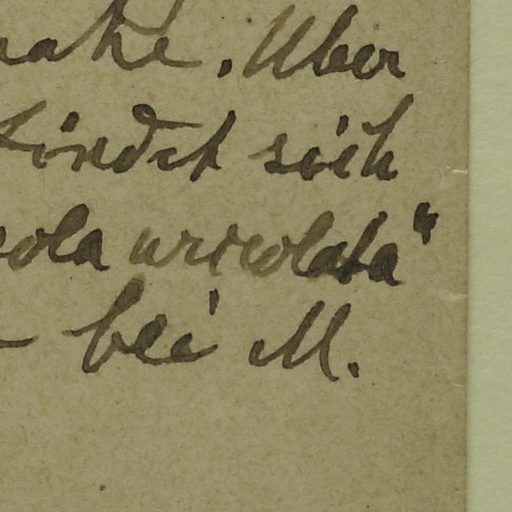 nahe. Uber
findet sich
cola uricolata“
bei M.